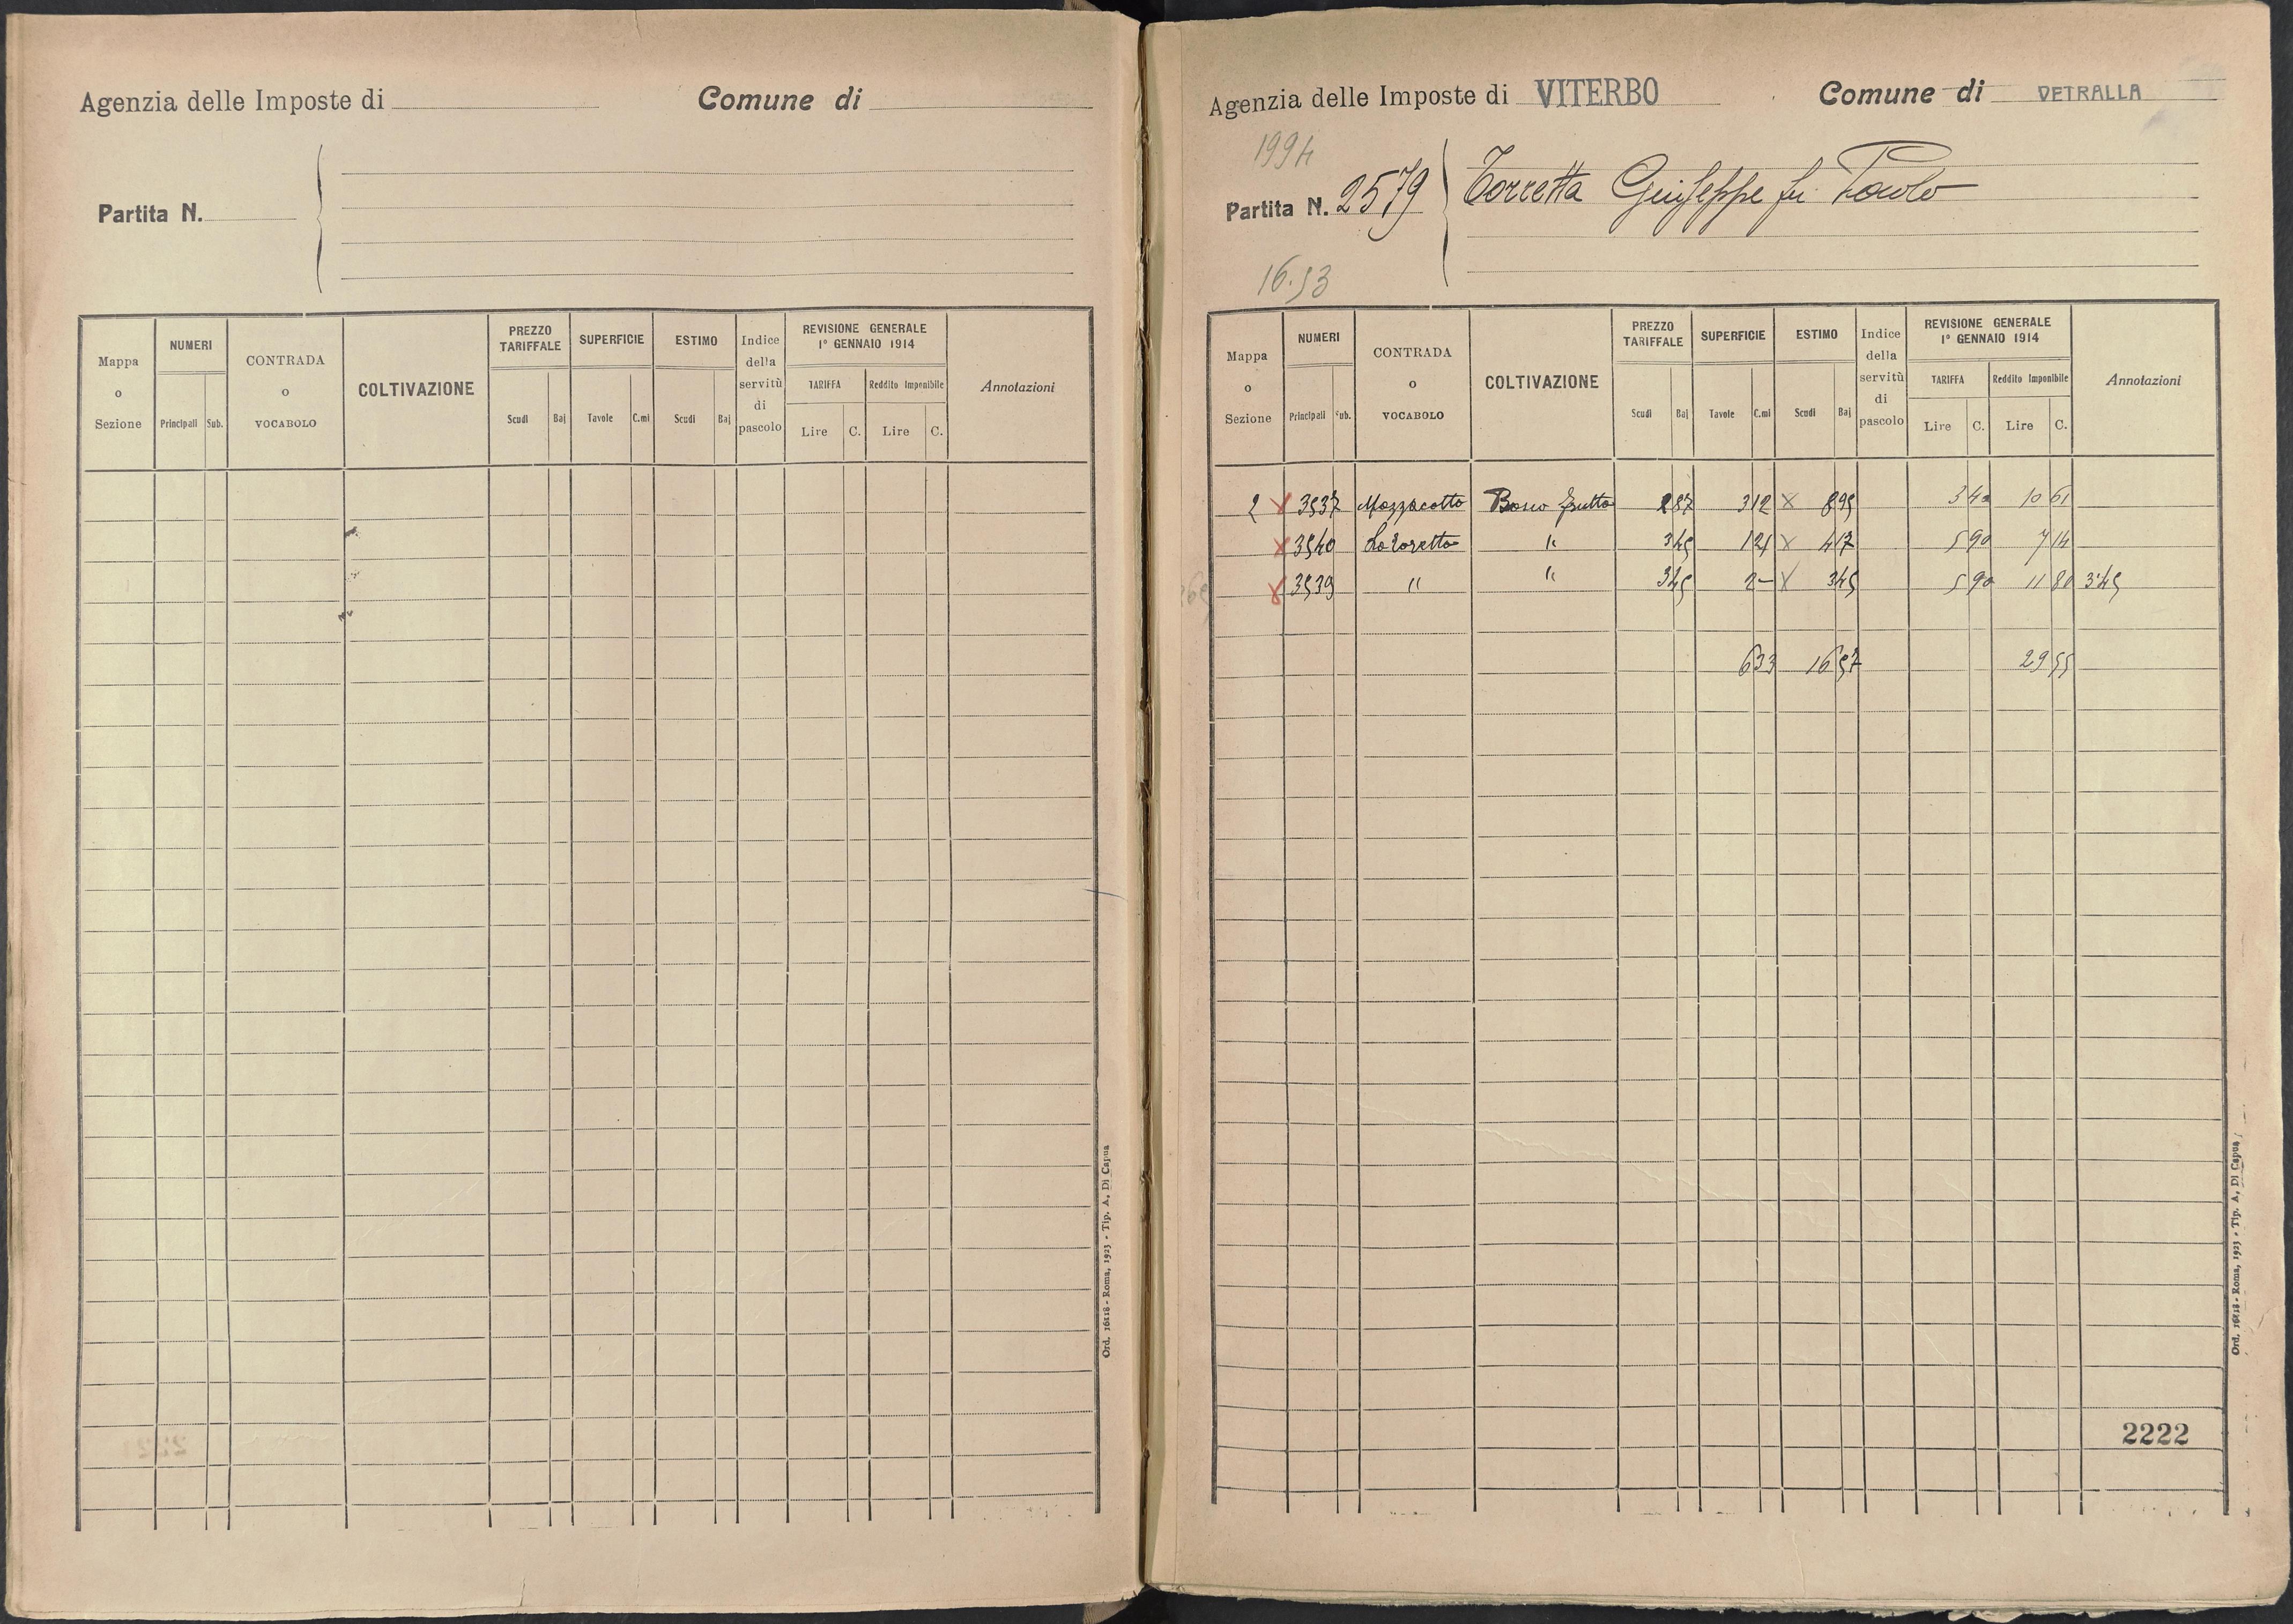 Agenzia delle Imposte di Comune di
Partita N.
Mappa o Sezione NUMERI Principali Sub. CONTRADA o VOCABOLO COLTIVAZIONE PREZZO TARIFFALE Scudi Baj SUPERFICIE Tavole C.mi ESTIMO Scudi Baj Indice della servitù di pascolo REVISIONE GENERALE 1° GENNAIO 1914 TARIFFA Lire C. Reddito Imponibile Lire C. Annotazioni
Ord. 16118 - Roma, 1923 - Tip. A. Di Capua
Agenzia delle Imposte di VITERBO Comune di VETRALLA
1994
Partita N. 2579 Torretta Giuseppe fu Paolo
16.53
Mappa o Sezione NUMERI Principali Sub. CONTRADA o VOCABOLO COLTIVAZIONE PREZZO TARIFFALE Scudi Baj SUPERFICIE Tavole C.mi ESTIMO Scudi Baj Indice della servitù di pascolo REVISIONE GENERALE 1° GENNAIO 1914 TARIFFA Lire C. Reddito Imponibile Lire C. Annotazioni
2 x 3537 Mazzacotto Bosco frutto 2 87 3 12 x 8 95 3 40 10 61
x 3540 La Toretta " 3 45 1 21 x 4 17 5 90 7 14
x 3539 " " 3 45 2 - x 3 45 5 90 11 80 3.45
6 33 16 57 29 55
2222
Ord. 16118 - Roma, 1923 - Tip. A. Di Capua